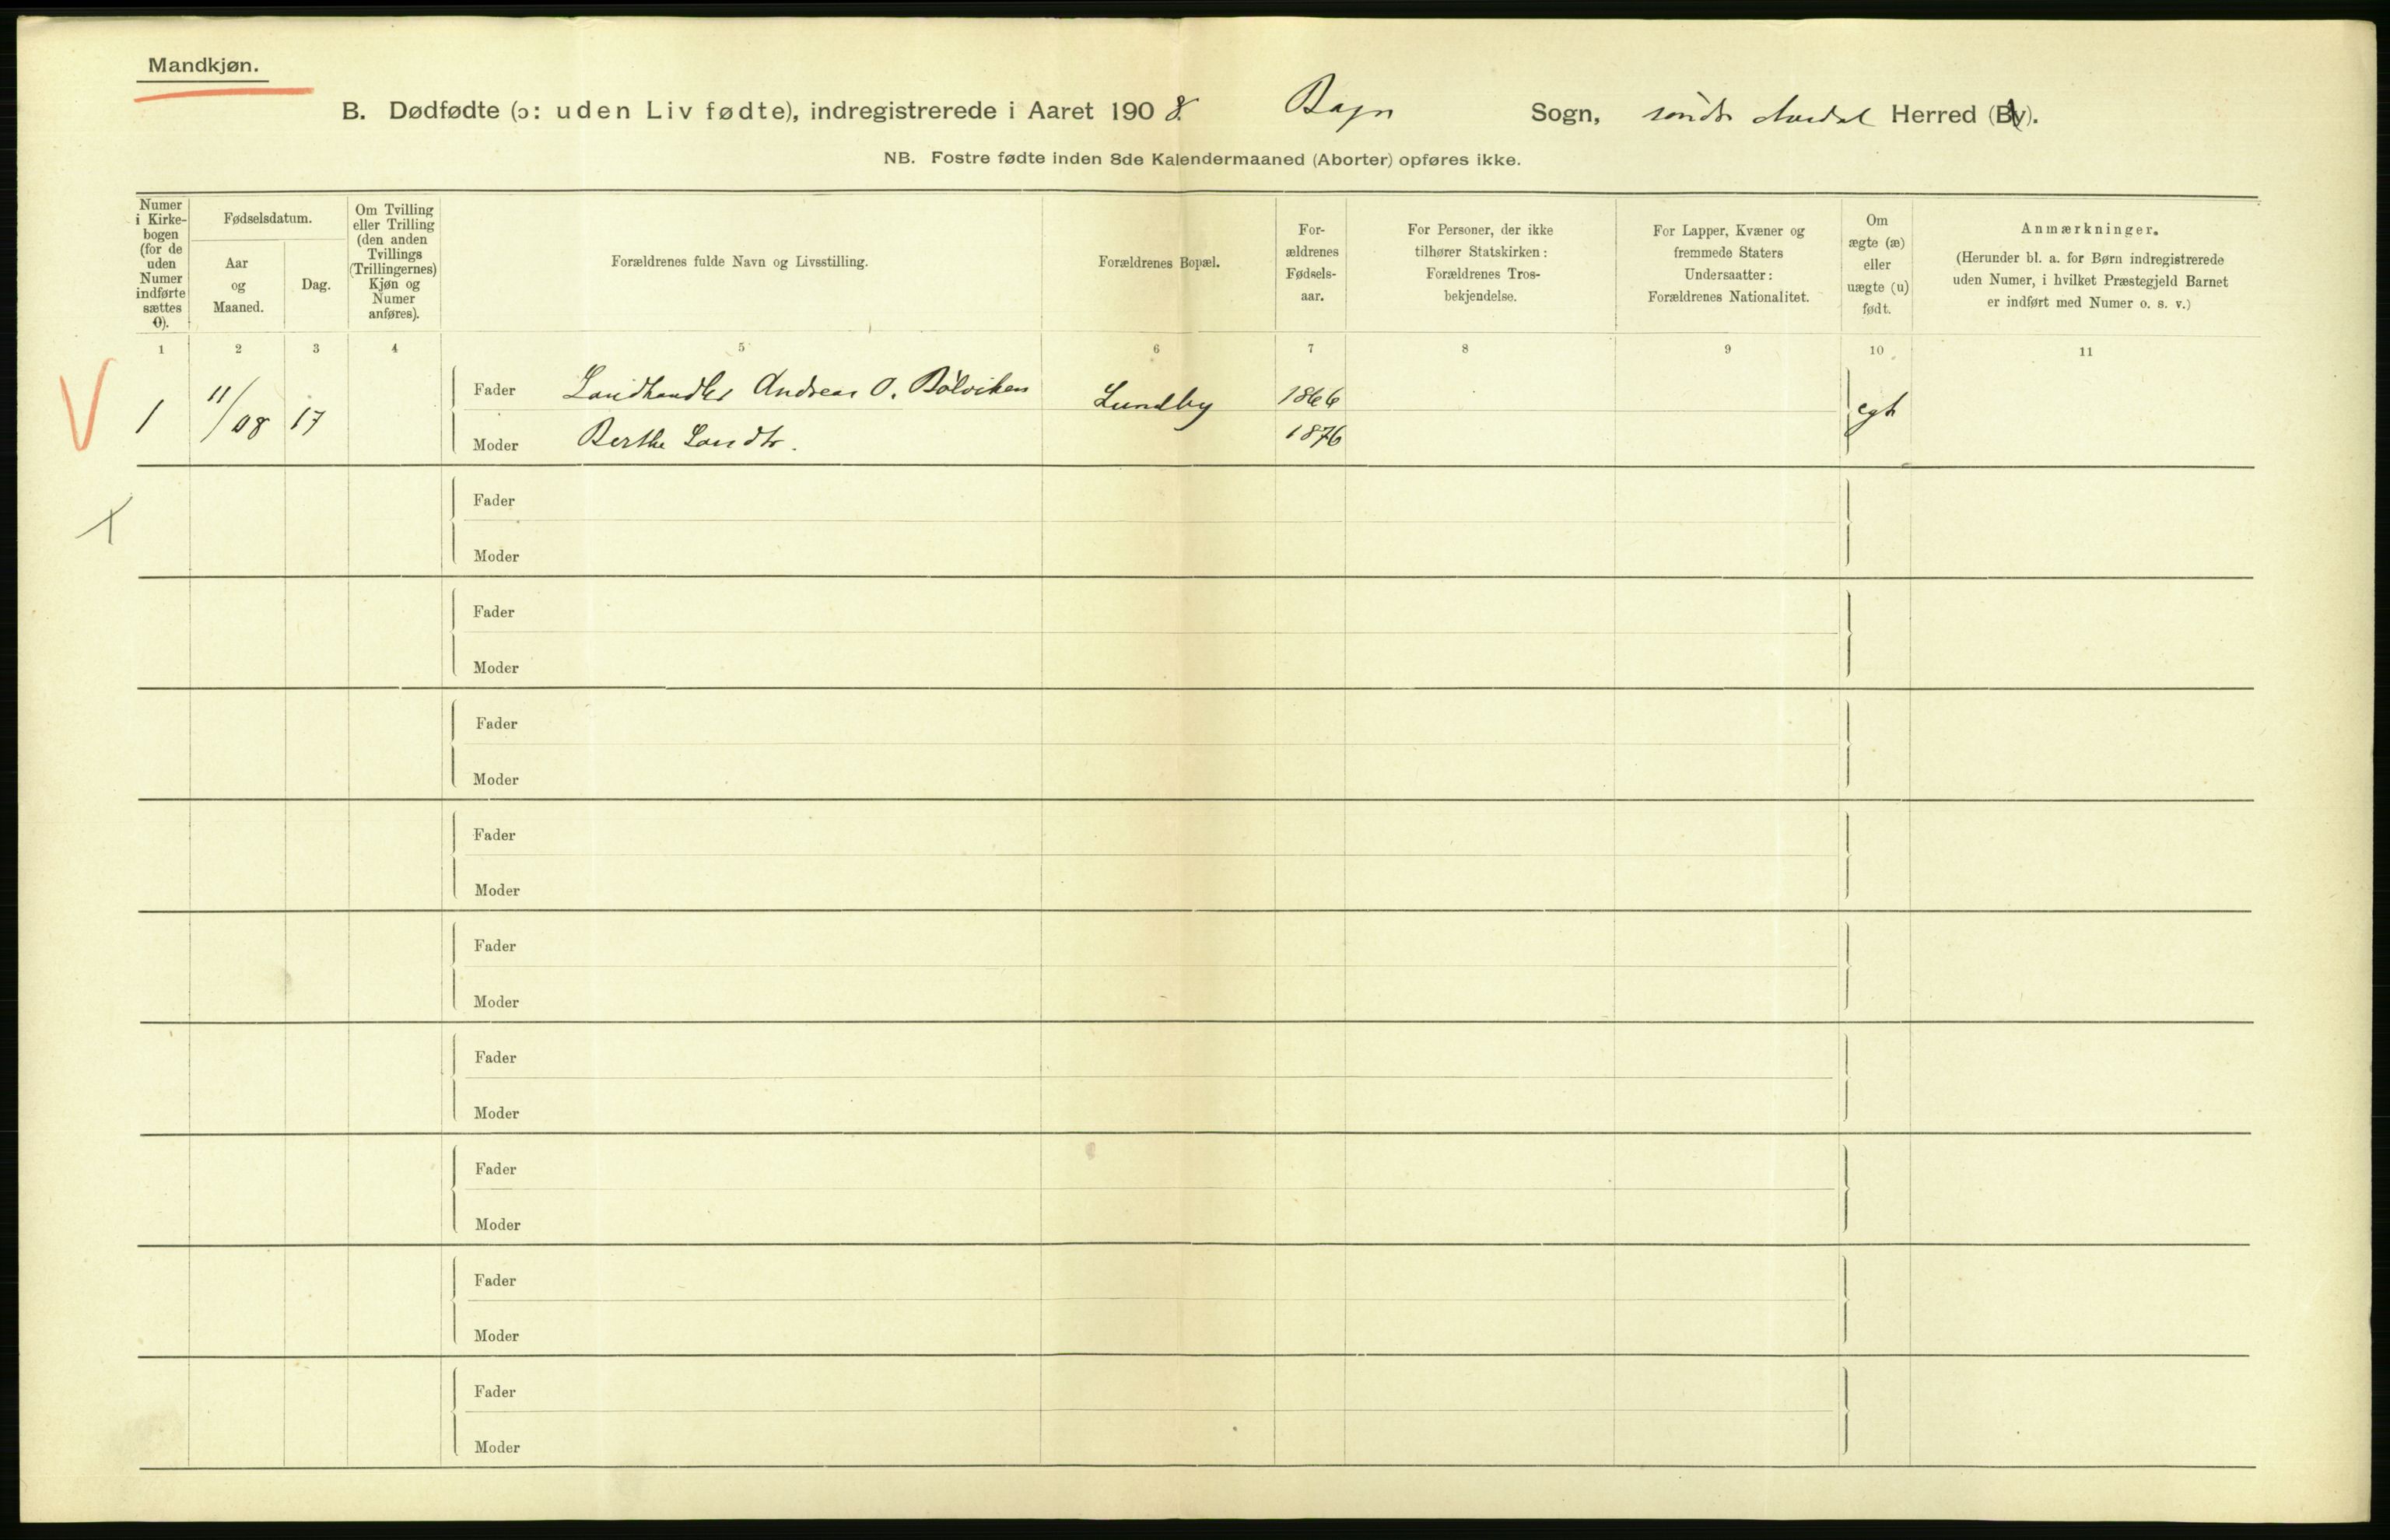 Mandkjøn.
B. Dødfødte (ɔ: uden Liv fødte), indregistrerede i Aaret 1908. Bagn Sogn, søndre Aurdal Herred (By).
NB. Fostre fødte inden 8de Kalendermaaned (Aborter) opføres ikke.
Numer i Kirke-bogen (for de uden Numer indførte sættes 0).
Fødselsdatum.
Aar og Maaned.
Dag.
Om Tvilling eller Trilling (den anden Tvillings (Trillingernes) Kjøn og Numer anføres).
Forældrenes fulde Navn og Livsstilling.
Forældrenes Bopæl.
For-ældrenes Fødsels-aar.
For Personer, der ikke tilhører Statskirken: Forældrenes Tros-bekjendelse.
For Lapper, Kvæner og fremmede Staters Undersaatter: Forældrenes Nationalitet.
Om ægte (æ) eller uægte (u) født.
Anmærkninger.
(Herunder bl. a. for Børn indregistrerede uden Numer, i hvilket Præstegjeld Barnet er indført med Numer o. s. v.)
1 2 3 4 5 6 7 8 9 10 11
V 1 11/08 17 Fader Landhandler Andreas O. Bølviken Lundby 1866 egt
Moder Berthe Landtr. 1876
X
Fader
Moder
Fader
Moder
Fader
Moder
Fader
Moder
Fader
Moder
Fader
Moder
Fader
Moder
Fader
Moder
Fader
Moder